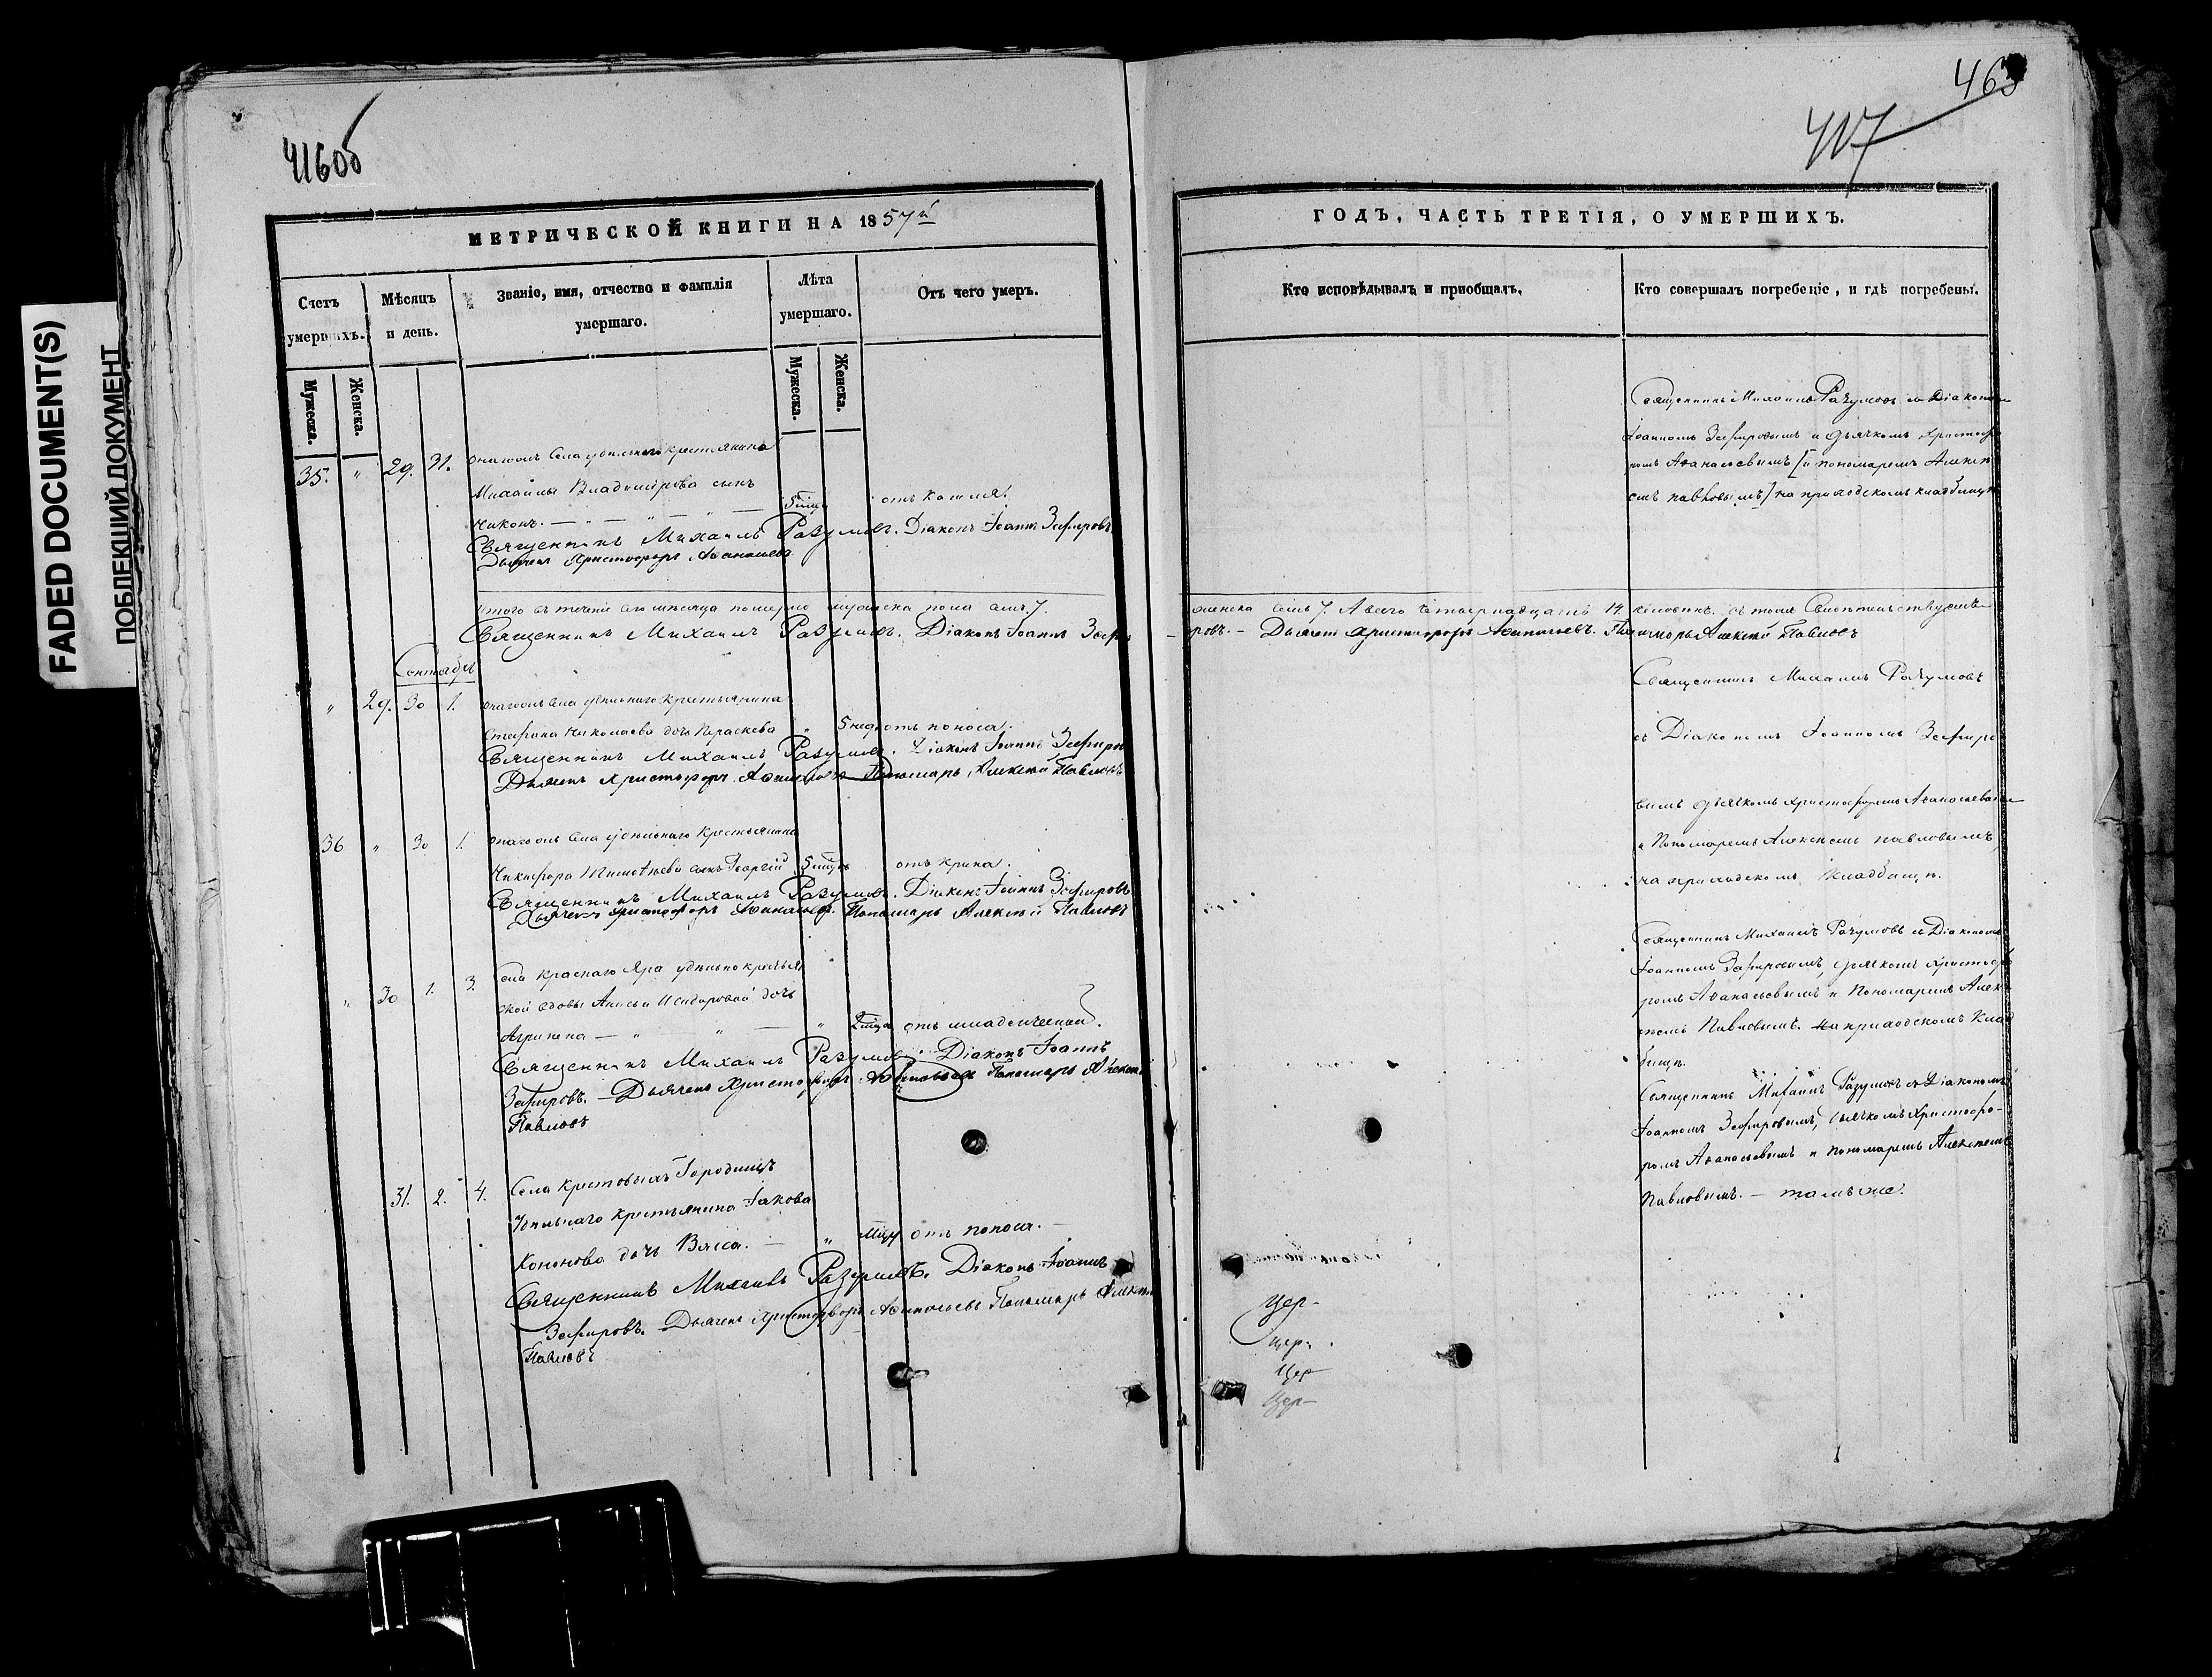 FADED DOCUMENT(S)
ПОБЛЕКШИЙ ДОКУМЕНТ
416об
МЕТРИЧЕСКОЙ КНИГИ НА 1857й
Счетъ умершихъ.
Мѣсяцъ и день.
Званіе, имя, отчество и фамилія умершаго.
Лѣта умершаго.
Отъ чего умеръ.
Мужеска.
Женска.
Мужеска.
Женска.
35. " 29. 31. Села удѣльнаго крестьянина
Михаила Владимірова сынъ
Никонъ. — " — " — " — 5 мѣц отъ кашля.
Священникъ Михаилъ Разумовъ. Діаконъ Іоаннъ Зефировъ
Дьячекъ Христофоръ Аѳанасьевъ
Итого въ теченіе сего мѣсяца померло мужеска пола семь 7.
Священникъ Михаилъ Разумовъ. Діаконъ Іоаннъ Зефи
Сентябрь
" 29. 30 1. села удѣльнаго крестьянина
Стефана Николаева дочь Параскева " 5 нед отъ поноса.
Священникъ Михаилъ Разумовъ. Діаконъ Іоаннъ Зефировъ
Дьячекъ Христофоръ Аѳанасьевъ Пономарь Алексѣй Павловъ
36 " 30 1. села удѣльнаго крестьянина
Никифора Тимоѳеева сынъ Георгій 5 мѣцъ отъ крика.
Священникъ Михаилъ Разумовъ. Діаконъ Іоаннъ Зефировъ
Дьячекъ Христофоръ Аѳанасьевъ. Пономарь Алексѣй Павловъ
" 30 1. 3. Села Краснаго Яра удѣльно крестья
ской вдовы Анисьи Исидоровой дочь
Агрипина — " — " — " 2 мѣца отъ младенческой.
Священникъ Михаилъ Разумовъ. Діаконъ Іоаннъ
Зефировъ. — Дьячекъ Христофоръ Аѳанасьевъ Пономарь Алексѣй
Павловъ
31. 2. 4. Села Крестовыхъ Городищъ
Удѣльнаго крестьянина Іакова
Кононова дочь Васса. — " мѣцъ отъ поноса. —
Священникъ Михаилъ Разумовъ. Діаконъ Іоаннъ
Зефировъ. Дьячекъ Христофоръ Аѳанасьевъ Пономарь Алексѣй
Павловъ
463
417
ГОДЪ, ЧАСТЬ ТРЕТІЯ, О УМЕРШИХЪ.
Кто исповѣдывалъ и пріобщалъ.
Кто совершалъ погребеніе, и гдѣ погребены.
Священникъ Михаилъ Разумовъ съ Діакономъ
Іоанномъ Зефировымъ и дьячкомъ Христофо
ромъ Аѳанасьевымъ [и пономаремъ Алексѣ
емъ Павловымъ] на приходскомъ кладбищѣ
женска семь 7. А всего четырнадцать 14. человѣкъ. Въ томъ свидѣтельствуемъ
ровъ. — Дьячекъ Христофоръ Аѳанасьевъ. Пономарь Алексѣй Павловъ
Священникъ Михаилъ Разумовъ
съ Діакономъ Іоанномъ Зефиро
вымъ дьячкомъ Христофоромъ Аѳанасьевымъ
и Пономаремъ Алексѣемъ Павловымъ,
на приходскомъ кладбищѣ.
Священникъ Михаилъ Разумовъ съ Діакономъ
Іоанномъ Зефировымъ, дьячкомъ Христофо
ромъ Аѳанасьевымъ и Пономаремъ Алек
сѣемъ Павловымъ. на приходскомъ клад
бищѣ.
Священникъ Михаилъ Разумовъ съ Діакономъ
Іоанномъ Зефировымъ, дьячкомъ Христофо-
ромъ Аѳанасьевымъ и пономаремъ Алексѣемъ
Павловымъ. — тамъ же.
Цер-
цер-
Цер
Цер-